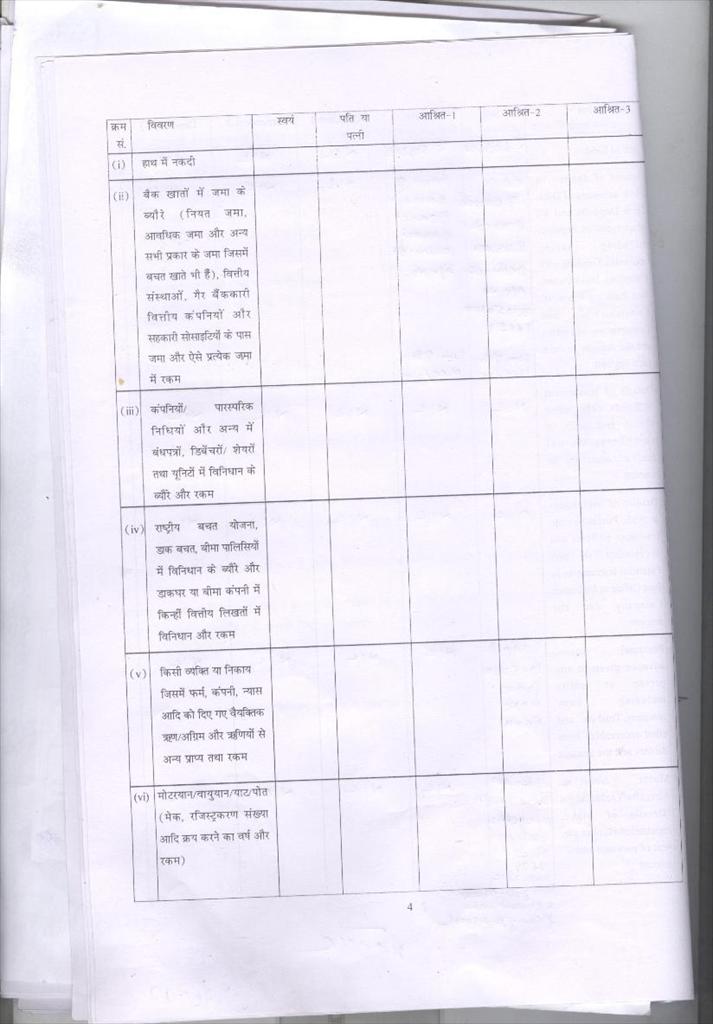 क्रम विवरण स्वयं पति या आश्रित-1 आश्रित-2 आश्रित-3
सं. पत्नी
(i) हाथ में नकदी
(ii) बैंक खातों में जमा के
ब्यौरे (नियत जमा,
आवधिक जमा और अन्य
सभी प्रकार के जमा जिसमें
बचत खाते भी हैं), वित्तीय
संस्थाओं, गैर बैंककारी
वित्तीय कंपनियों और
सहकारी सोसाइटियों के पास
जमा और ऐसे प्रत्येक जमा
में रकम
(iii) कंपनियों/ पारस्परिक
निधियों और अन्य में
बंधपत्रों, डिबेंचरों/ शेयरों
तथा यूनिटों में विनिधान के
ब्यौरे और रकम
(iv) राष्ट्रीय बचत योजना,
डाक बचत, बीमा पालिसियों
में विनिधान के ब्यौरे और
डाकघर या बीमा कंपनी में
किन्हीं वित्तीय लिखतों में
विनिधान और रकम
(v) किसी व्यक्ति या निकाय
जिसमें फर्म, कंपनी, न्यास
आदि को दिए गए वैयक्तिक
ऋण/अग्रिम और ऋणियों से
अन्य प्राप्य तथा रकम
(vi) मोटरयान/वायुयान/याट/पोत
(मेक, रजिस्ट्रकरण संख्या
आदि क्रय करने का वर्ष और
रकम)
4